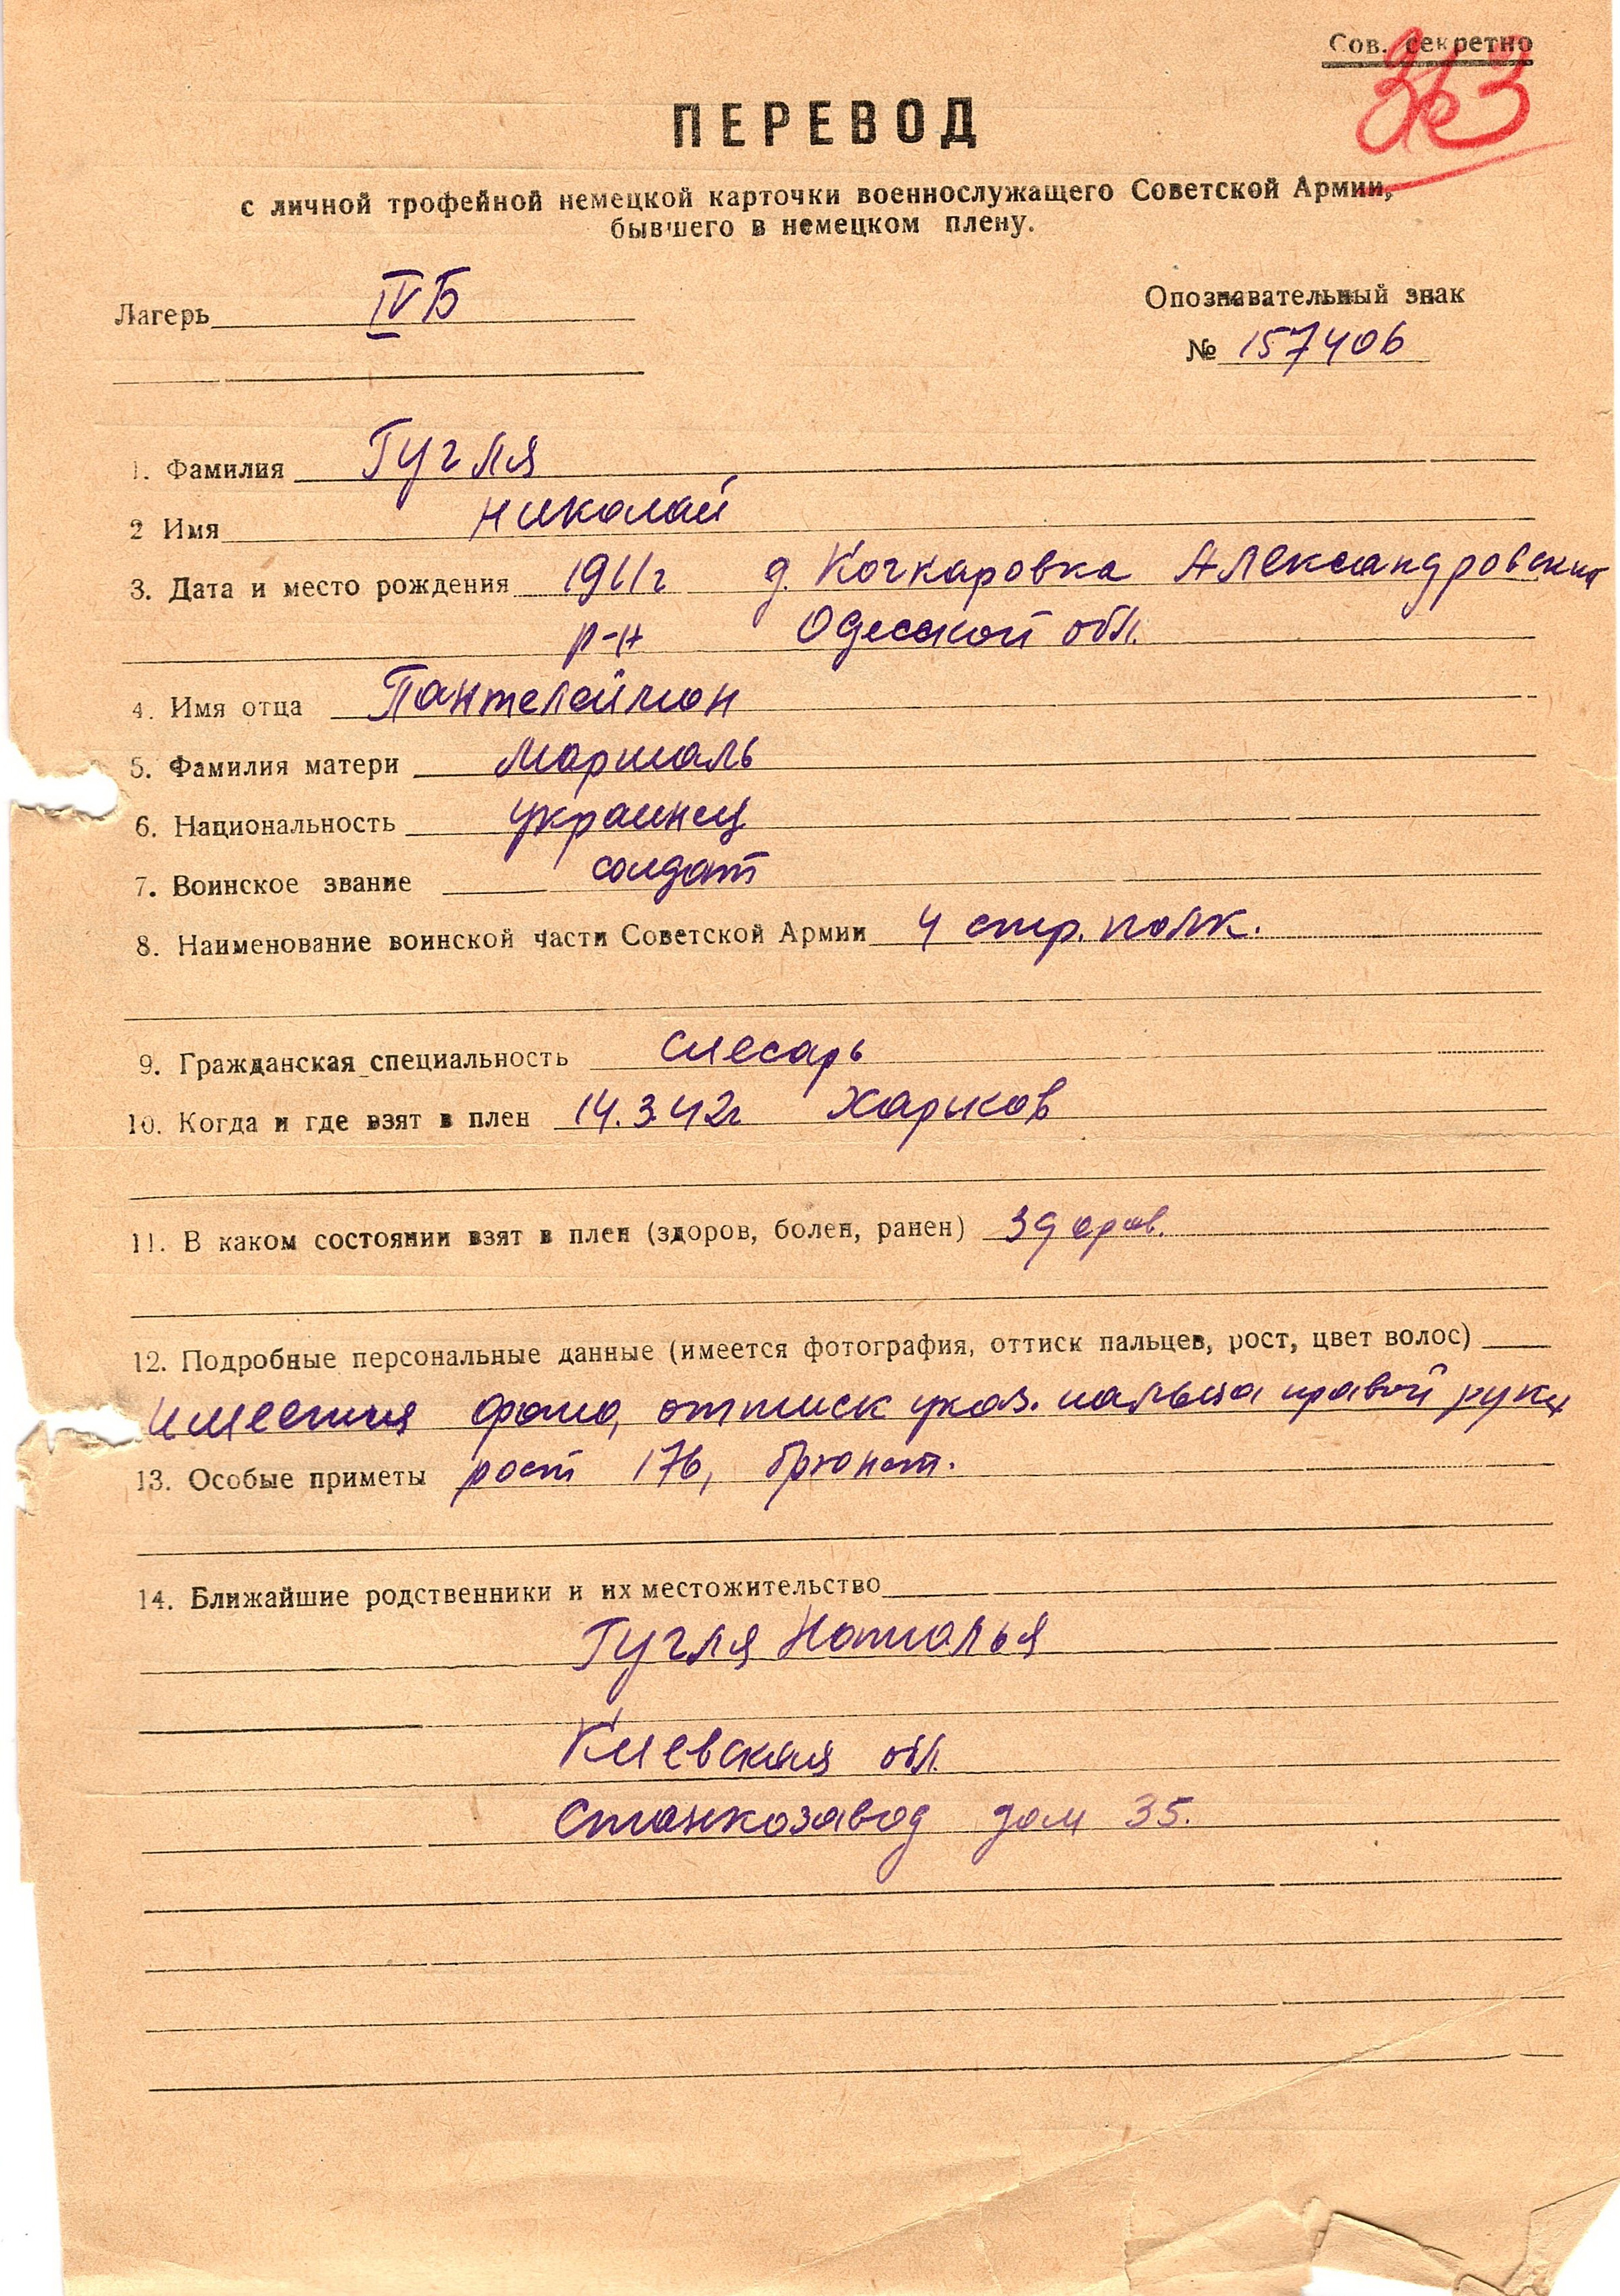 Сов. секретно
363
ПЕРЕВОД
с личной трофейной немецкой карточки военнослужащего Советской Армии,
бывшего в немецком плену.
Лагерь IVБ
Опознавательный знак
№ 157406
1. Фамилия Гугля
2 Имя Николай
3. Дата и место рождения 1911г д. Кочкаровка Александровский
р-н Одесской обл.
4. Имя отца Пантелеймон
5. Фамилия матери Маршаль
6. Национальность украинец
7. Воинское звание солдат
8. Наименование воинской части Советской Армии 4 стр. полк.
9. Гражданская специальность слесарь
10. Когда и где взят в плен 14.3.42г Харьков
11. В каком состоянии взят в плен (здоров, болен, ранен) здоров.
12. Подробные персональные данные (имеется фотография, оттиск пальцев, рост, цвет волос)
имеется фото, оттиск указ. пальца правой руки
13. Особые приметы рост 176, брюнет.
14. Ближайшие родственники и их местожительство
Гугля Наталья
Киевская обл.
Станкозавод дом 35.